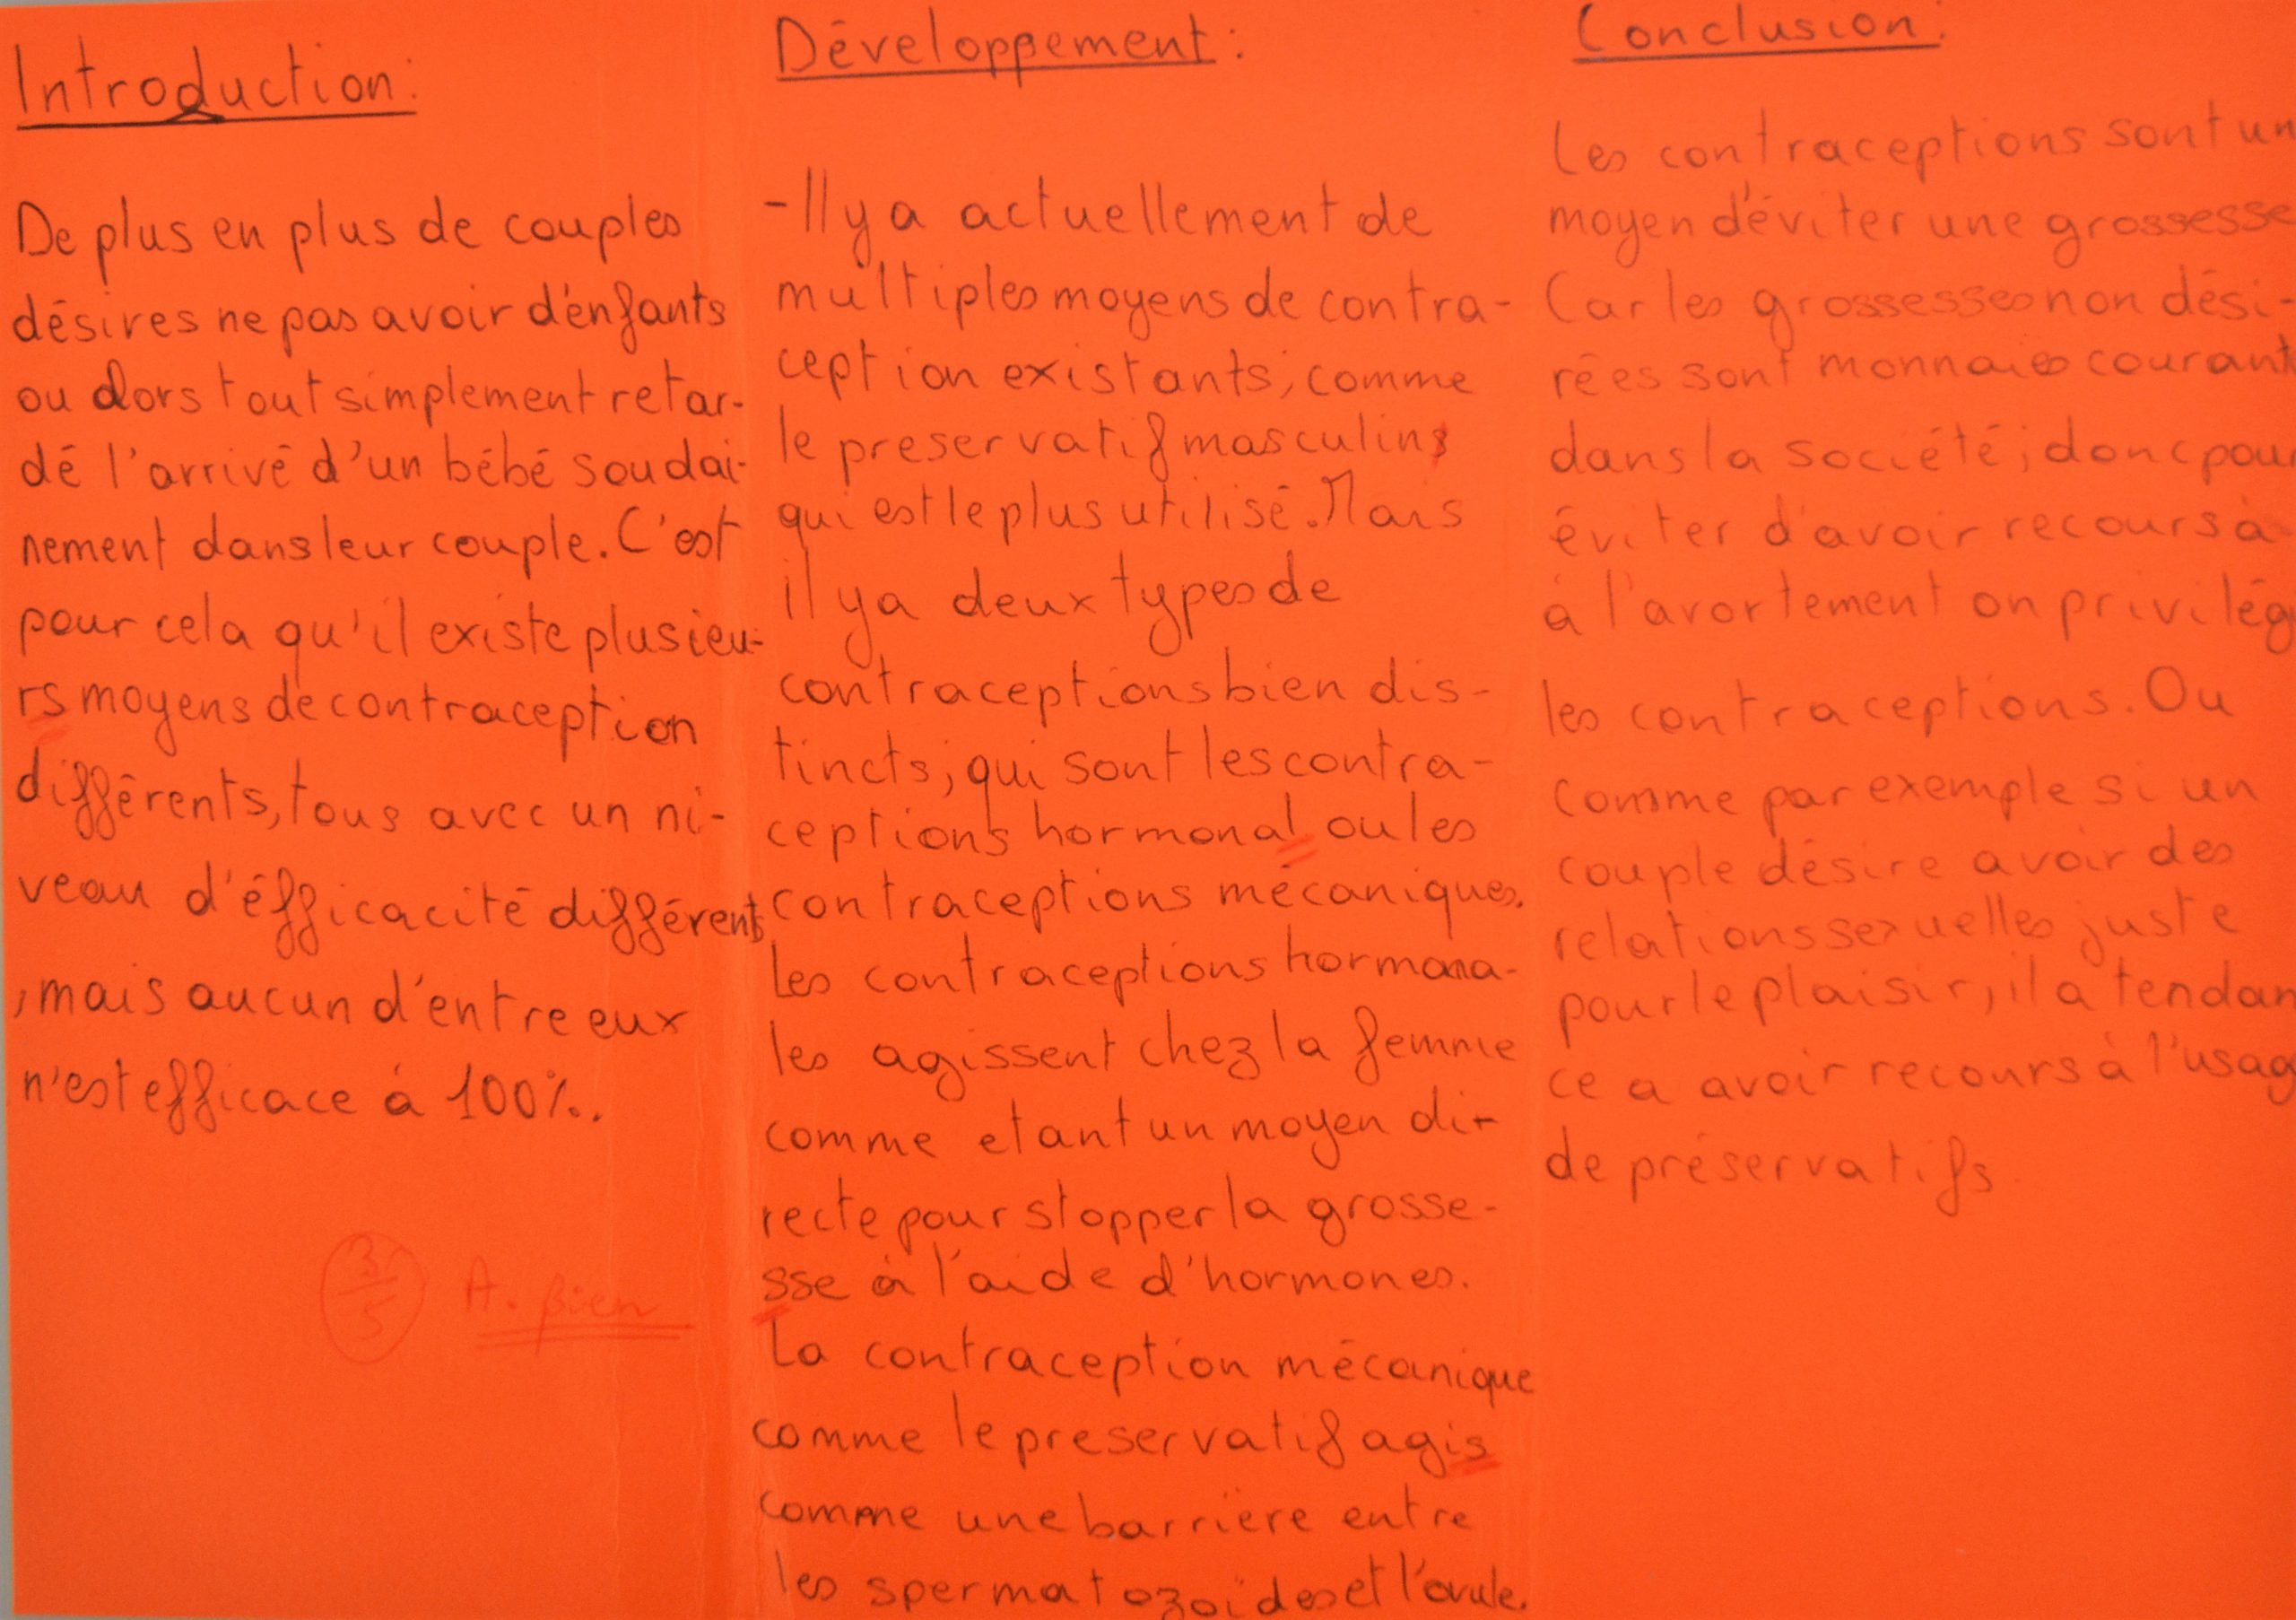 Introduction:
De plus en plus de couples
désires ne pas avoir d'énfants
ou alors tout simplement retar-
dé l'arrivé d'un bébé soudai-
nement dans leur couple. C'est
pour cela qu'il existe plusieu-
rs moyens de contraception
différents, tous avec un ni-
veau d'éfficacité différent
, mais aucun d'entre eux
n'est efficace à 100%.
3
5
A. Bien
Développement:
- Il y a actuellement de
multiples moyens de contra-
ception existants, comme
le preservatif masculins
qui est le plus utilisé. Mais
il y a deux types de
contraceptions bien dis-
tincts; qui sont les contra-
ceptions hormonal ou les
contraceptions mécaniques.
Les contraceptions hormona-
les agissent chez la femme
comme etant un moyen di-
recte pour stopper la grosse-
sse à l'aide d'hormones.
La contraception mécanique
comme le preservatif agis
comme une barrière entre
les spermatozoïdes et l'ovule.
Conclusion:
Les contraceptions sont un
moyen d'éviter une grossesse
Car les grossesses non dési-
rées sont monnaies courant
dans la société; donc pour
éviter d'avoir recours à
à l'avortement on privilég
les contraceptions. Ou
comme par exemple si un
couple désire avoir des
relations sexuelles juste
pour le plaisir, il a tendan
ce a avoir recours à l'usag
de préservatifs.